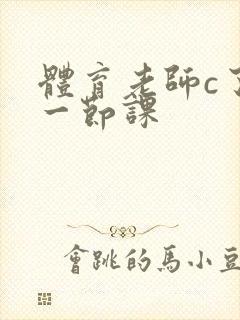 體育老師c了
一節課
會跳的馬小豆